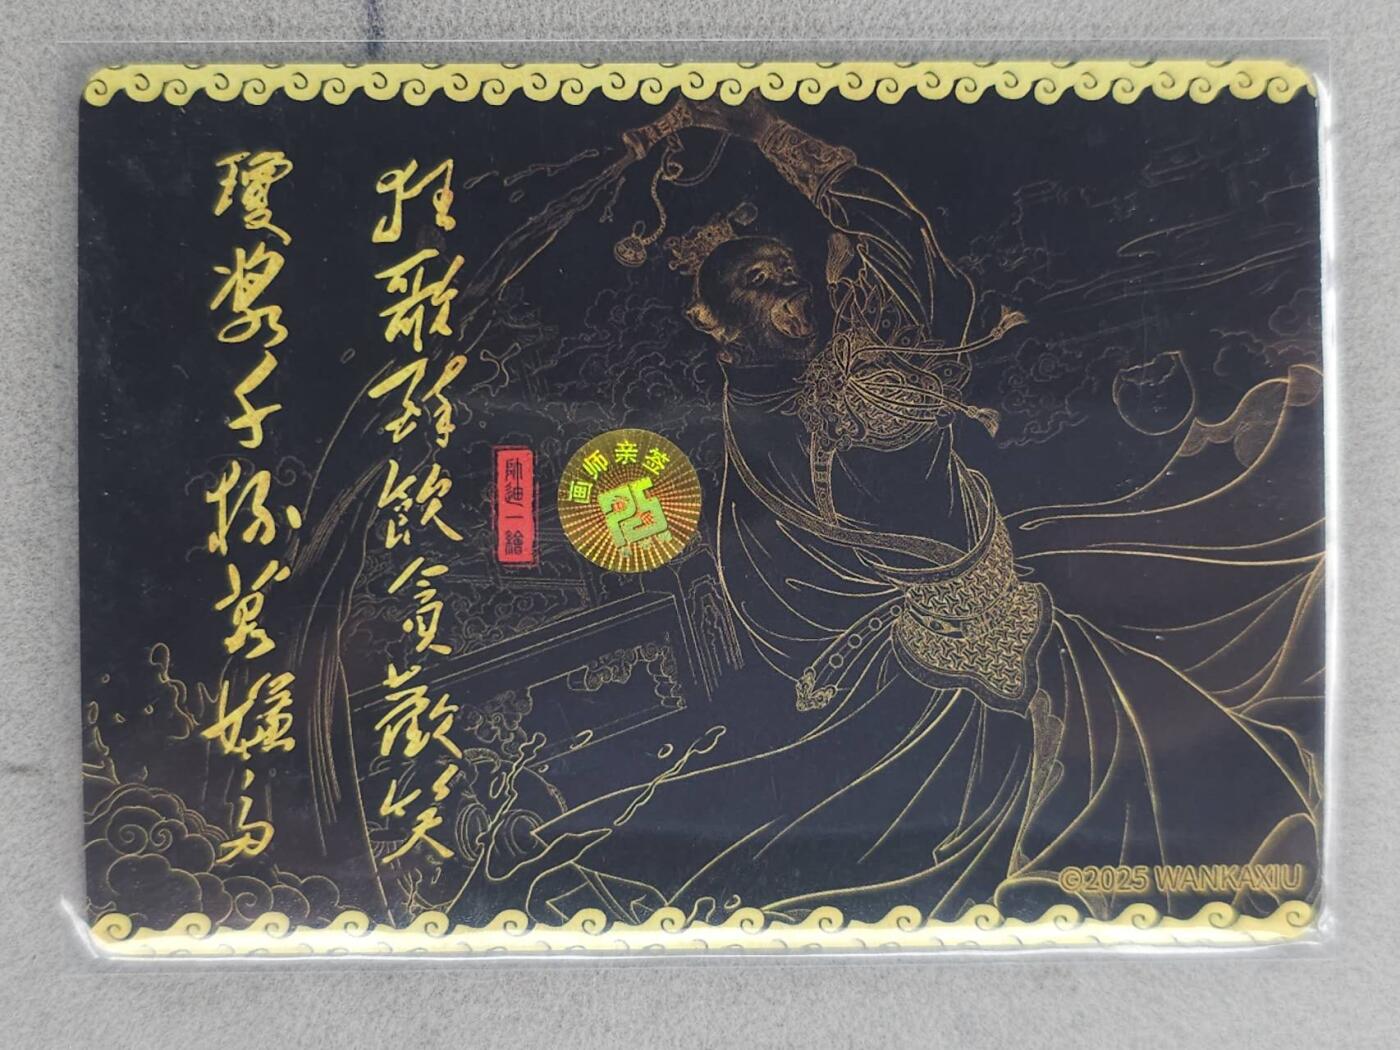 狂歌醉飲貪歡笑
瓊漿千杯嫌多
画师亲签
©2025 WANKAXIU